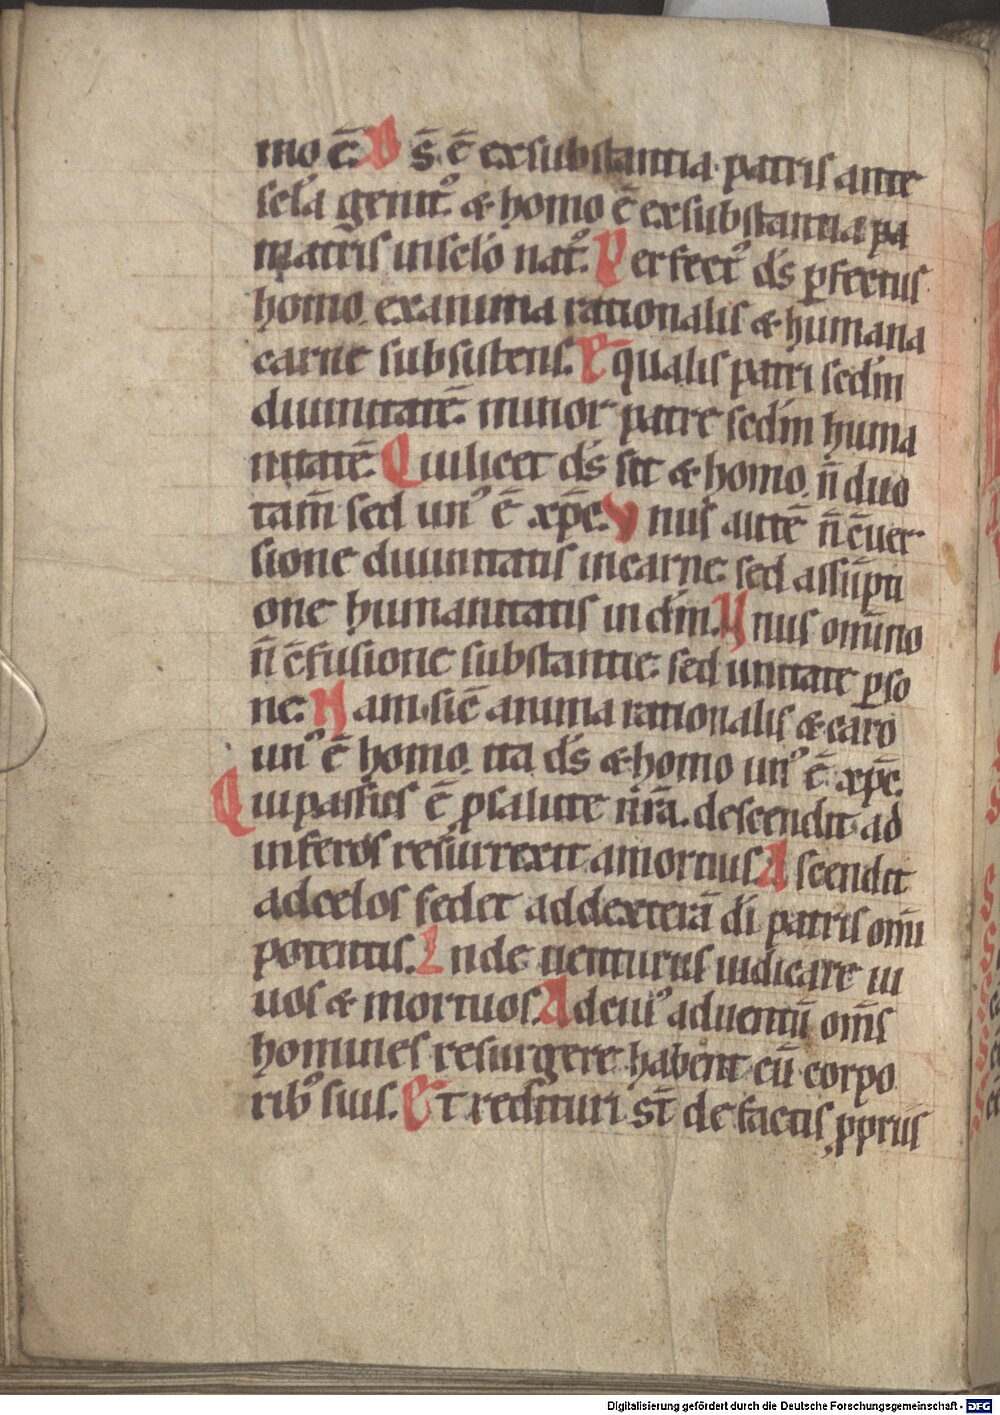 mo ē. D s̄ ē exsubstantia patris ante
scl̄a genit᷒. & homo ē exsubstantia pa
matris inscl̄o nat᷒. Perfect᷒ ds̄ ꝑfectus
homo. exanima rationalis & humana
carne subsistens. Equalis patri scdm̄
diuinitatē. minor patre scdm̄ huma
nitatē. Quilicet ds̄ sit & homo. n̄ duo
tam̄ sed un᷒ ē xp̄c. Vnus autē n̄ c̄uer
sione diuinitatis incarne. sed assūpti
one humanitatis in dm̄. Vnus om̄ino
n̄ c̄fusione substantie. sed unitate ꝑso
ne. Nam sic̄ anima rationalis & caro
un᷒ ē homo. ita ds̄ & homo un᷒ ē xp̄c.
Qui passus ē ꝓsalute nr̄a. descendit ad
inferos resurrexit amortuis. Ascendit
adcelos sedet addexterā di̅ patris om̄i
potentis. Inde uenturus iudicare ui
uos & mortuos. Adcui᷒ aduentū om̄s
homines resurgere habent cū corpo
rib᷒ suis. Et reddituri st̄ de factis ꝓpriis
Digitalisierung gefördert durch die Deutsche Forschungsgemeinschaft - DFG